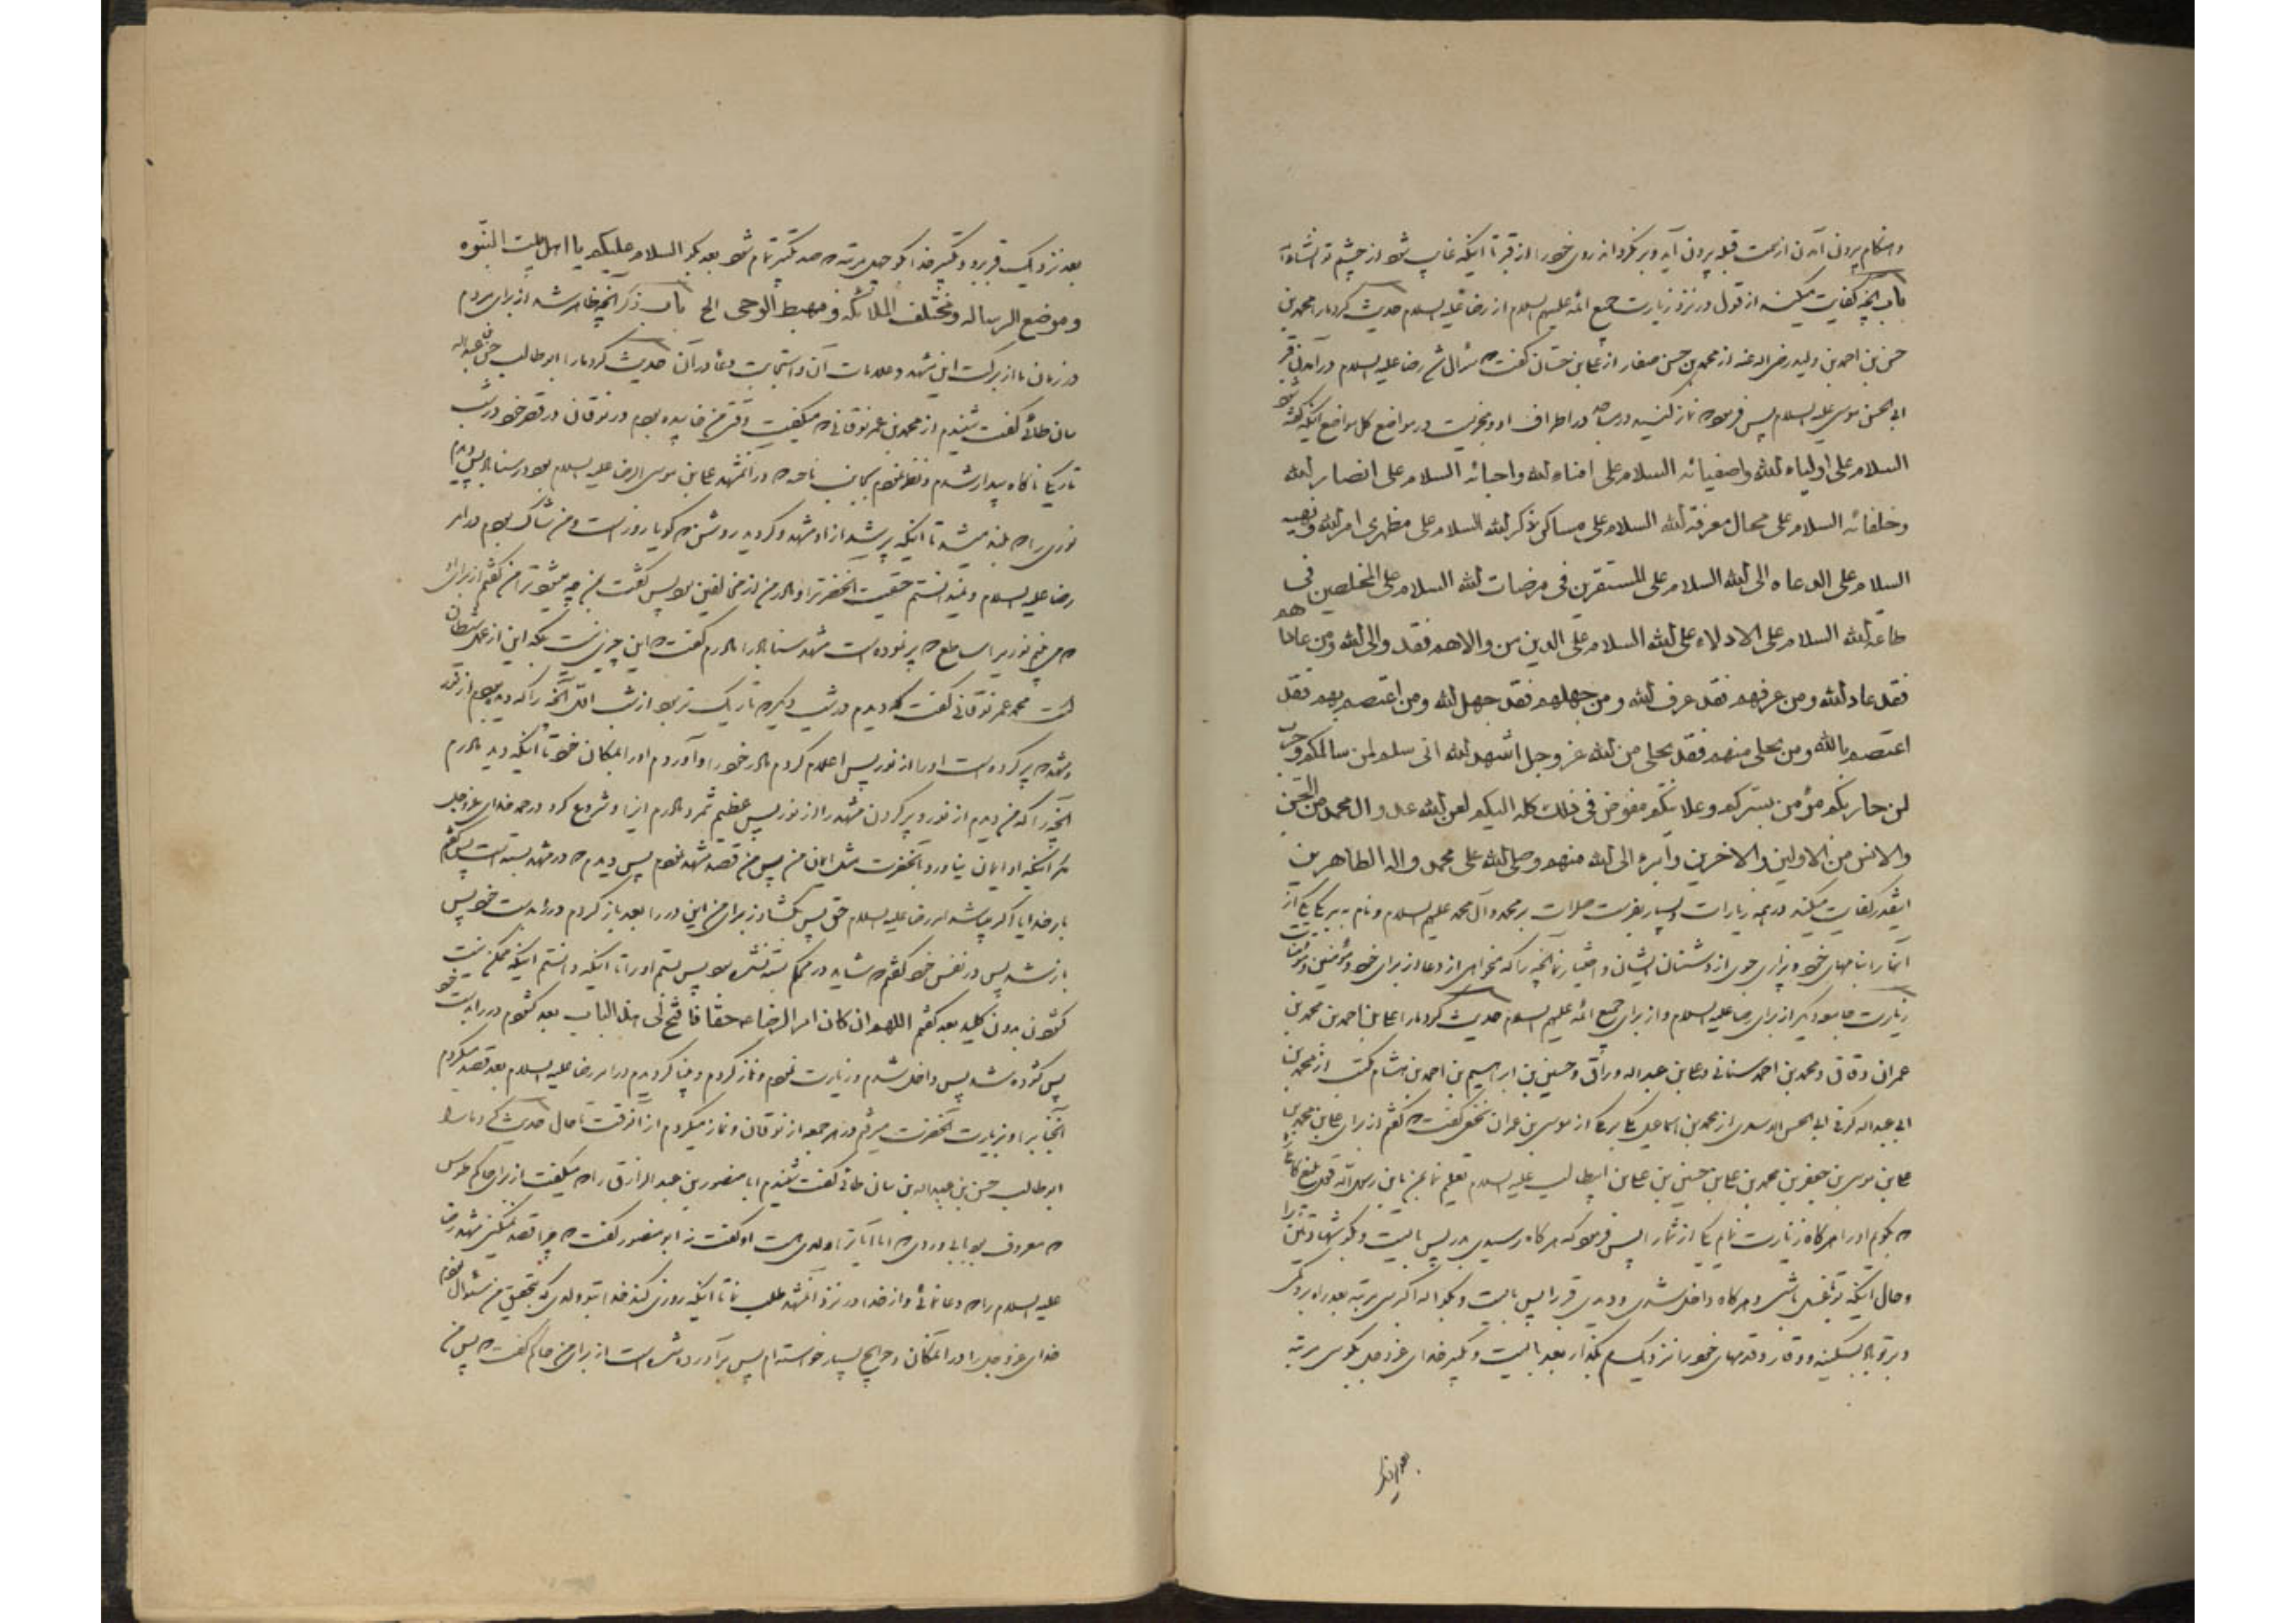 و هنگام بیرون آمدن از سمت قبله بیرون آید و بر نگردانه روی خود را از قبر تا اینکه غایب شود از چشم تو انشاءالله
باب آنچه کفایت میکند از قول در نزد زیارت جمیع ائمه علیهم السلام از رضا علیه السلام حدیث کرد مارا محمد بن
حسن بن احمد بن ولید رضی اله عنه از محمد بن حسن صفار از علی بن حسان گفت که سؤال شد رضا علیه السلام در آمدن قبر
ابی الحسن موسی علیه السلام پس فرمود که نماز کنید در مساجد در اطراف او و مجزیست در مواضع کل مواضع اینکه گفته شود
السلام علی اولیاء لله واصفیائه السلام علی امناء لله واحبائه السلام علی انصار لله
وخلفائه السلام علی محال معرفة لله السلام علی مساکن ذکر لله السلام علی مظهری امر لله ونهیه
السلام علی الدعاه الی لله السلام علی المستقرین فی مرضات لله السلام علی المخلصین فی
طاعة لله السلام علی الادلاء علی لله السلام علی الذین من والاهم فقد والی لله ومن عاداهم
فقد عاد لله ومن عرفهم فقد عرف لله ومن جهلهم فقد جهل لله ومن اعتصم بهم فقد
اعتصم بالله ومن تخلی منهم فقد تخلی من لله عز وجل اشهد لله انی سلم لمن سالمکم وحرب
لمن حاربکم مؤمن بسترکم وعلانیتکم مفوض فی ذلک کله الیکم لعن لله عدو ال محمد من الجن
والانس من الاولین والاخرین وابرء الی لله منهم وصلی لله علی محمد واله الطاهرین
اینقدر کفایت میکند در همه زیارات و بسیار بفرست صلوات بر محمد و آل محمد علیهم السلام و نام ببر یک یک از
آنها را بنامهای خود و بیزاری جوی از دشمنان ایشان و اختیار نما آنچه را که بخواهی از دعا و از برای خود و مؤمنین و مؤمنات
زیارت جامعه دیگر از برای رضا علیه السلام و از برای جمیع ائمه علیهم السلام حدیث کرد مارا علی بن احمد بن محمد بن
عمران دقاق و محمد بن احمد سنانی و علی بن عبد اله وراق و حسین بن ابراهیم بن احمد بن هشام مکتب از محمد بن
ابی عبد اله کوفی ابی الحسن الاسدی از محمد بن اسماعیل مکی برمکی از موسی بن عمران نخعی گفت که گفتم از برای علی بن محمد بن
علی بن موسی بن جعفر بن محمد بن علی بن حسین بن علی بن ابیطالب علیه السلام تعلیم نما بمن یابن رسول الله قول بلیغ کاملی
که بگویم او را هرگاه زیارت نمایم یکی از شما را پس فرمود که هرگاه رسیدی بدر پس بایست و بگو شهادتین را
و حال اینکه تو با غسل باشی و هرگاه داخل شدی و دیدی قبر را پس بایست و بگو اله اکبر سی مرتبه بعد راه برو کمی
و بر تو باد بسکینه و وقار و قدمهای خود را نزدیک هم بگذار بعد بایست و تکبیر خدای عزوجل بگو سی مرتبه
بعد نزدیک قبر برو و تکبیر خدا بگو چهل مرتبه که صد تکبیر تمام شود بعد بگو السلام علیکم یا اهل بیت النبوه
وموضع الرساله ومختلف الملائکه ومهبط الوحی الخ باب ذکر آنچه ظاهر شد از برای مردم
در زمان ما از برکت این مشهد و علامات آن و استجابت دعا در آن حدیث کرد مارا ابو طالب حسین بن عبد اله
بنان طائی گفت شنیدم از محمد بن عمر نوقانی که میگفت وقتی من خوابیده بودم در نوقان در قصر خود در شب
تاریک ناگاه بیدار شدم و نظر نمودم بجانب ناحیه که در آن مشهد علی بن موسی الرضا علیه السلام بود در سناباد پس دیدم
نوری را که بلند میشد تا اینکه پر شد از او مشهد و گردید روشن که گویا روز است و من شاک بودم در امر
رضا علیه السلام و نمیدانستم حقیت آنحضرت را و مادر من از مخالفین بود پس گفت بمن چه میشود ترا من گفتم از برای او
که می بینم نوریرا ساطع که پر نموده است مشهد سناباد را مادرم گفت که این چیزی نیست بلکه این از عمل شیطان
است محمد عمر نوقانی گفت که دیدم در شب دیگر که تاریک تر بود از شب اول آنچه را که دیده بودم از نور
و مشهد که پر کرده است او را از نور پس اعلام کردم مادر خود را و آوردم او را بمکان خود تا اینکه دید مادرم
آنچه را که من دیدم از نور و پر کردن مشهد را از نور پس عظیم شمرد مادرم اینرا و شروع کرد در حمد خدای عزوجل
مگر اینکه او ایمان نیاورد بآنحضرت مثل ایمان من پس من قصد مشهد نمودم پس دیدم که در مشهد بسته است پس گفتم
بار خدایا اگر باشد امر رضا علیه السلام حق پس بگشا از برای من این در را بعد باز کردم در را بدست خود پس
باز شد پس در نفس خود گفتم که شاید در محکم بسته نشده بود پس بستم او را تا اینکه دانستم اینکه ممکن نیست
گشودن بدون کلید بعد گفتم اللهم ان کان امر الرضاء حقا فافتح لی هذا الباب بعد گشودم در را بدست خود
پس گشوده شد پس داخل شدم و زیارت نمودم و نماز کردم و بینا گردیدم در امر رضا علیه السلام بعد قصد میکردم
آنجا برای زیارت آنحضرت میرفتم در هر جمعه از نوقان و نماز میکردم از آنوقت تا حال حدیث کرد مارا
ابو طالب حسین بن عبد اله بن بنان طائی گفت شنیدم ابا منصور بن عبد الرزاق را که میگفت از برای حاکم طوس
که معروف بود بابی وردی که اما آیا ترا ولدی هست او گفت نه ابو منصور گفت که چرا قصد نمیکنی مشهد رضا
علیه السلام را که دعا نمائی و از خدا در نزد آن مشهد طلب نما تا اینکه روزی کند خدا بتو ولدی که بتحقیق من سئوال نمودم
خدای عزوجل را در آنمکان و حوایج بسیار خواسته ام پس برآورده شده است از برای من حاکم گفت که پس من